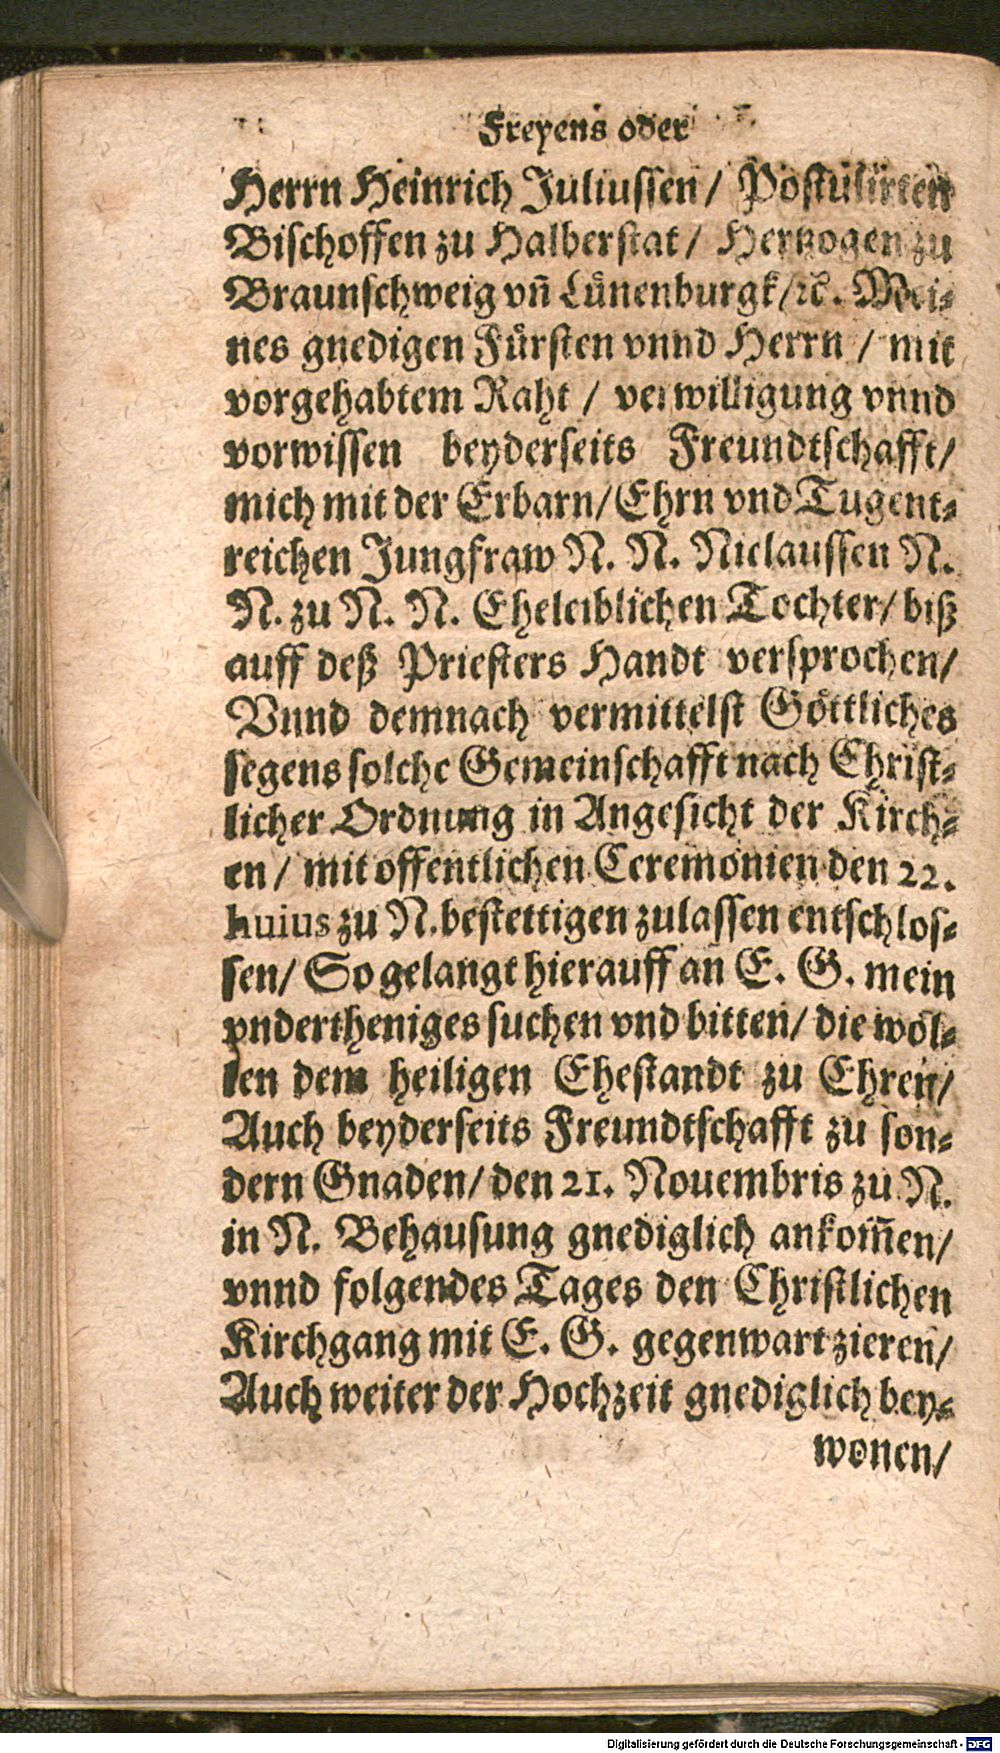 Freyens oder
Herrn Heinrich Juliussen/ Postulirten
Bischoffen zu Halberstat/ Hertzogen zu
Braunschweig vñ Lünenburgk/ꝛc. Mei-
nes gnedigen Fürsten vnnd Herrn / mit
vorgehabtem Raht / verwilligung vnnd
vorwissen beyderseits Freundtschafft/
mich mit der Erbarn/Ehrn vnd Tugent-
reichen Jungfraw N. N. Niclaussen N.
N. zu N. N. Eheleiblichen Tochter/ biß
auff deß Priesters Handt versprochen/
Vnnd demnach vermittelst Göttliches
segens solche Gemeinschafft nach Christ-
licher Ordnung in Angesicht der Kirch-
en/ mit offentlichen Ceremonien den 22.
huius zu N. bestettigen zulassen entschlos-
sen/ So gelangt hierauff an E. G. mein
vndertheniges suchen vnd bitten/ die wöl-
len dem heiligen Ehestandt zu Ehren/
Auch beyderseits Freundtschafft zu son-
dern Gnaden/ den 21. Nouembris zu N.
in N. Behausung gnediglich ankom̃en/
vnnd folgendes Tages den Christlichen
Kirchgang mit E. G. gegenwart zieren/
Auch weiter der Hochzeit gnediglich bey-
wonen/
Digitalisierung gefördert durch die Deutsche Forschungsgemeinschaft - DFG